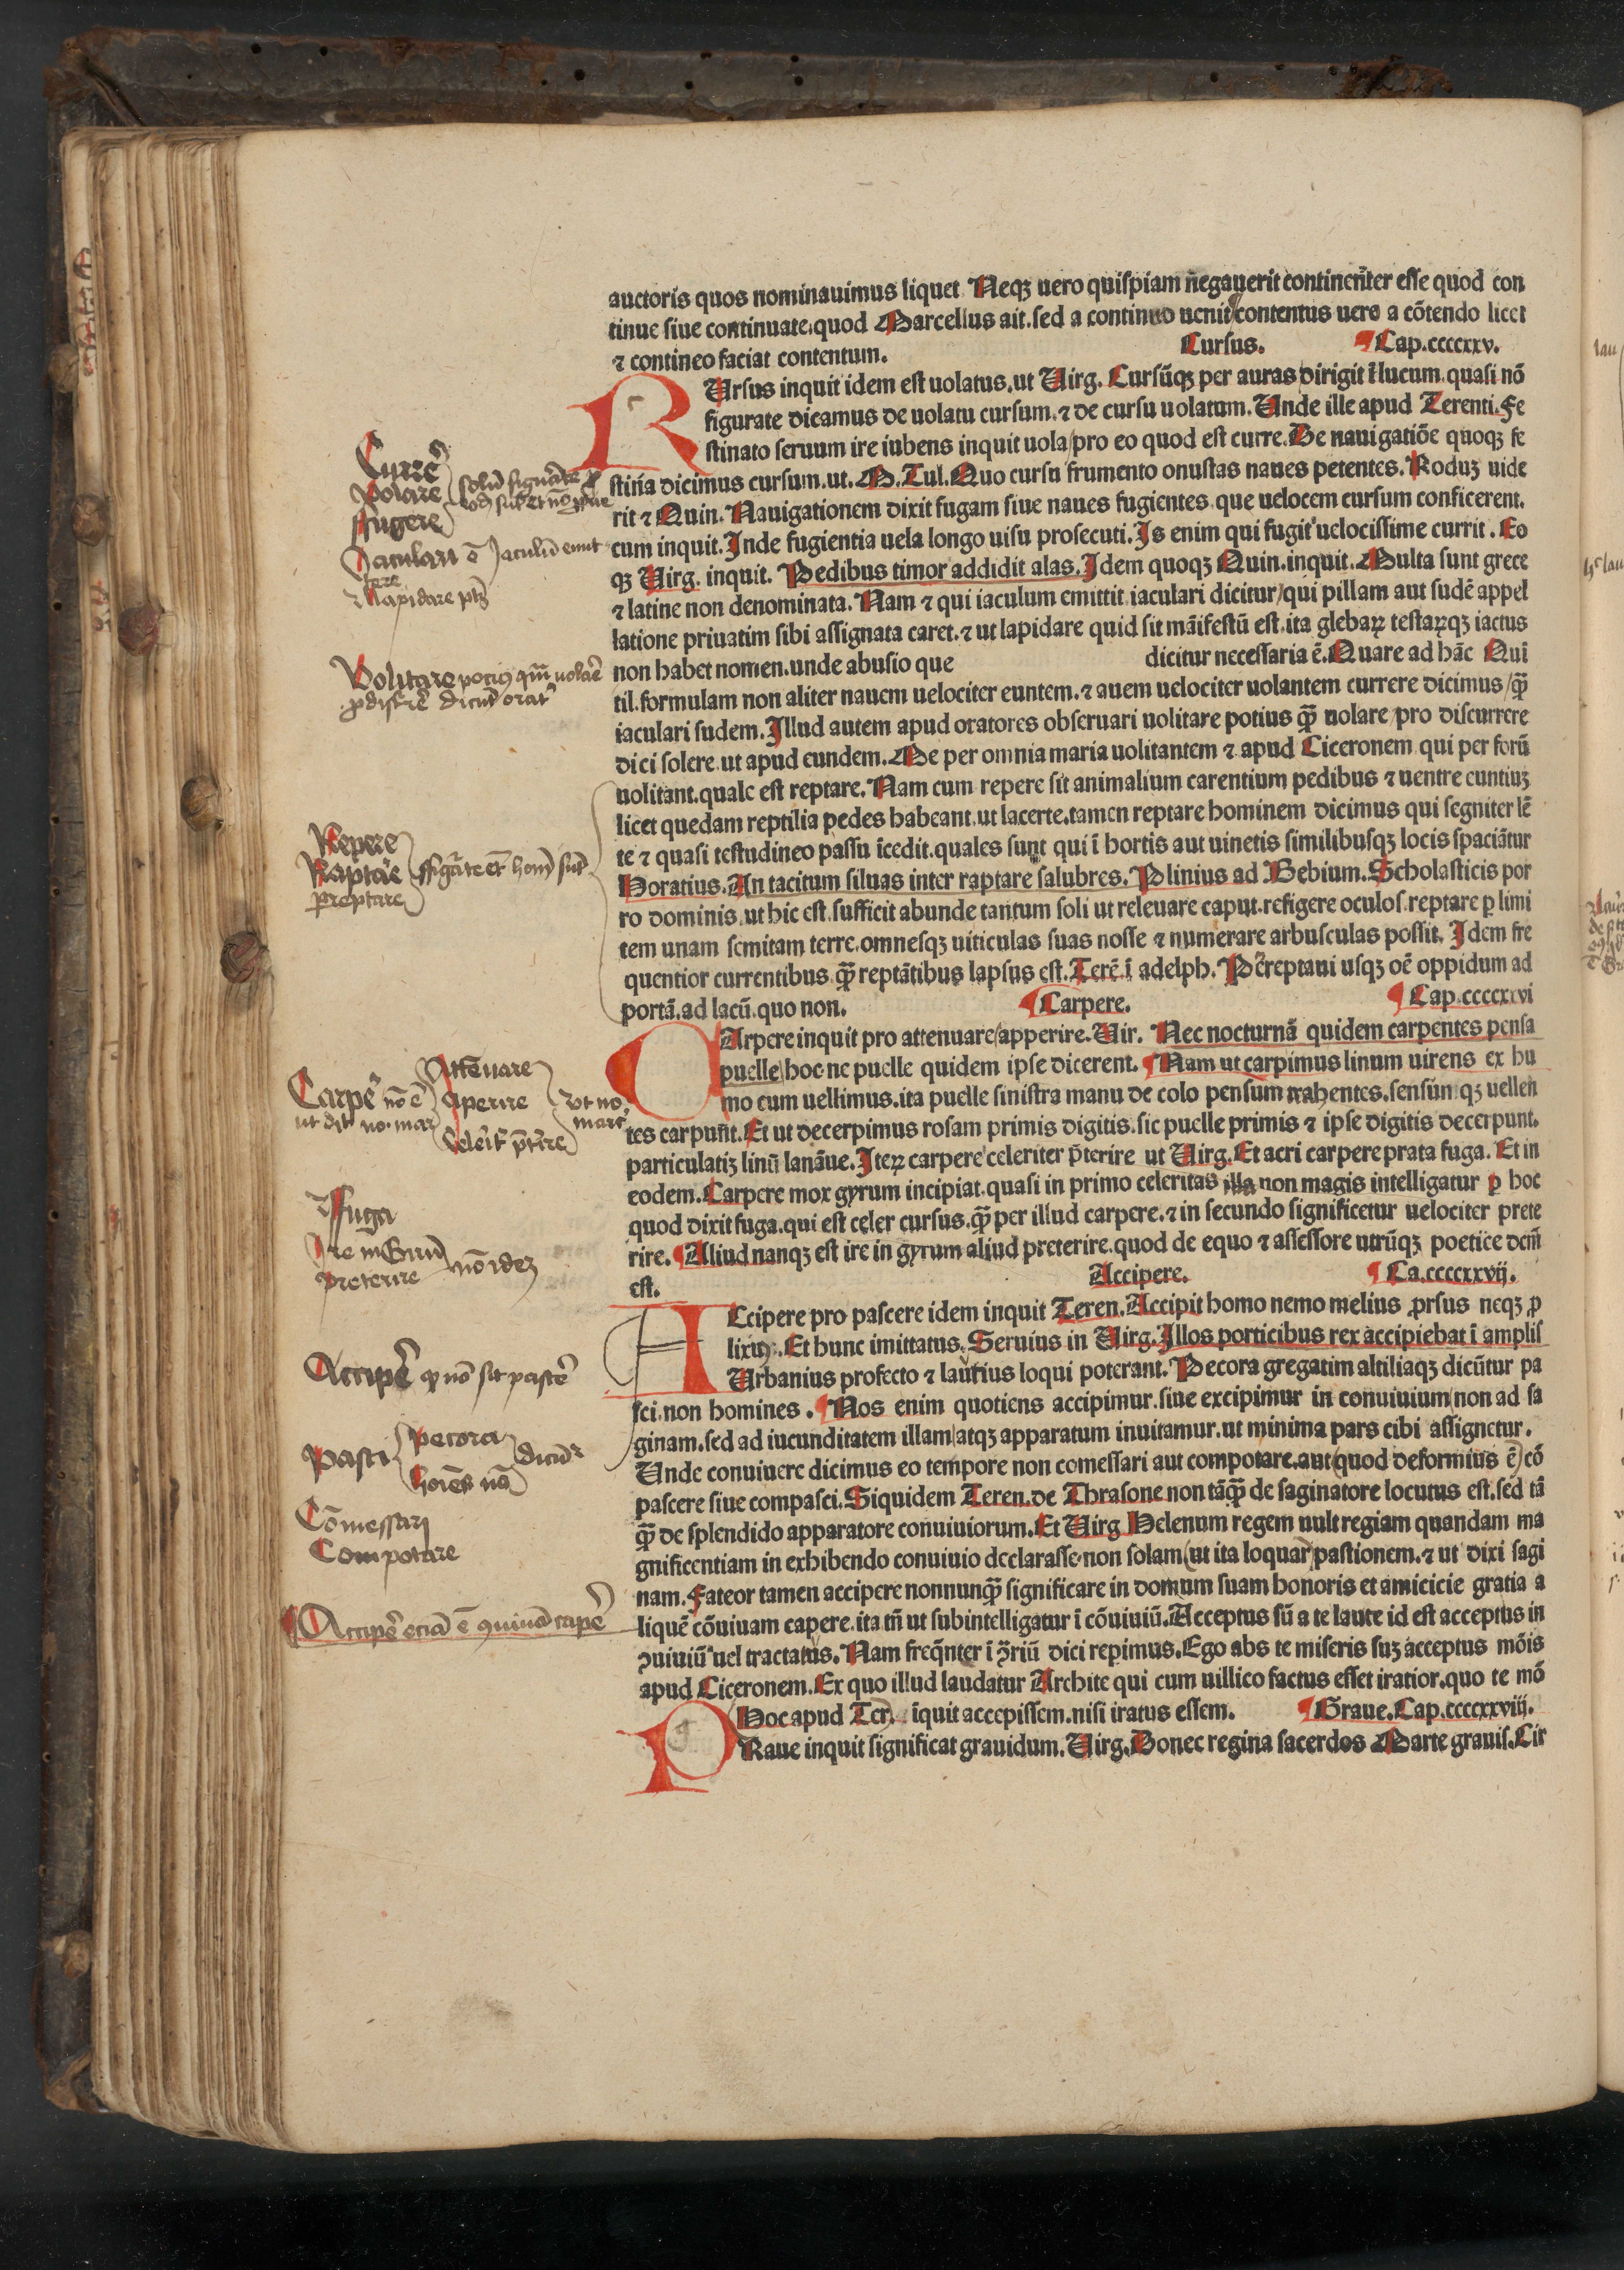 auctoris quos nominauimus liquet Neqꝫ uero quiſpiam ñegauerit continent̃er eſſe quod con
tinue ſiue continuate.quod Marcellus ait.ſed a continuo uenit contentus uero a cõtendo licet
⁊ contineo faciat contentum.
Curſus. ¶ Cap.ccccxxv.
R Urſus inquit idem eſt uolatus.ut Uirg. Curſũqꝫ per auras dirigit ĩ lucum.quaſi nõ
figurate dicamus de uolatu curſum.⁊ de curſu uolatum.Unde ille apud Terenti.Fe
ſtinato ſeruum ire iubens inquit uola/pro eo quod eſt curre.De nauigatiõe quoqꝫ fe
ſtiña dicimus curſum.ut.M.Tul.Quo curſu frumento onuſtas naues petentes.Roduꝫ uide
rit ⁊ Quin.Nauigationem dixit fugam ſiue naues fugientes que uelocem curſum conficerent.
cum inquit.Inde fugientia uela longo uiſu proſecuti.Is enim qui fugit uelociſſime currit.Eo
qꝫ Uirg. inquit. Pedibus timor addidit alas.Idem quoqꝫ Quin.inquit.Multa ſunt grece
⁊ latine non denominata.Nam ⁊ qui iaculum emittit iaculari dicitur/qui pillam aut ſudẽ appel
latione priuatim ſibi aſſignata caret.⁊ ut lapidare quid ſit mãifeſtũ eſt.ita glebaꝝ teſtaꝝqꝫ iactus
non habet nomen.unde abuſio que dicitur neceſſaria ẽ.Quare ad hãc Qui
til.formulam non aliter nauem uelociter euntem.⁊ auem uelociter uolantem currere dicimus/q̃ꝫ
iaculari ſudem.Illud autem apud oratores obſeruari uolitare potius q̃ꝫ uolare pro diſcurrere
dici ſolere.ut apud eundem.Me per omnia maria uolitantem ⁊ apud Ciceronem qui per forũ
uolitant.quale eſt reptare.Nam cum repere ſit animalium carentium pedibus ⁊ uentre euntiuꝫ
licet quedam reptilia pedes habeant.ut lacerte.tamen reptare hominem dicimus qui ſegniter lẽ
te ⁊ quaſi teſtudineo paſſu ĩcedit.quales ſunt qui ĩ hortis aut uinetis ſimilibuſqꝫ locis ſpaciãtur
Horatius.An tacitum ſiluas inter raptare ſalubres.Plinius ad Bebium.Scholaſticis por
ro dominis.ut hic eſt.ſufficit abunde tantum ſoli ut releuare caput.refigere oculoſ.reptare ꝑ limi
tem unam ſemitam terre.omneſqꝫ uiticulas ſuas noſſe ⁊ numerare arbuſculas poſſit. Idem fre
quentior currentibus q̃ꝫ reptãtibus lapſus eſt.Terẽ.ĩ adelph.Pereptaui uſqꝫ oẽ oppidum ad
portã.ad lacũ.quo non.
¶ Carpere. ¶ Cap.ccccxxvi
C Arpere inquit pro attenuare/apperire.Uir. Nec nocturnã quidem carpentes penſa
puelle/hoc ne puelle quidem ipſe dicerent. ¶ Nam ut carpimus linum uirens ex hu
mo cum uellimus.ita puelle ſiniſtra manu de colo penſum trahentes.ſenſim qꝫ uellen
tes carpunt̃.Et ut decerpimus roſam primis digitis.ſic puelle primis ⁊ ipſe digitis decerpunt.
particulatiꝫ linũ lanãue.Iteꝝ carpere celeriter p̃terire ut Uirg.Et acri carpere prata fuga. Et in
eodem.Carpere mox gyrum incipiat.quaſi in primo celeritas illa non magis intelligatur ꝑ hoc
quod dixit fuga.qui eſt celer curſus.q̃ꝫ per illud carpere.⁊ in ſecundo ſignificetur uelociter prete
rire. ¶ Aliud nanqꝫ eſt ire in gyrum aliud preterire.quod de equo ⁊ aſſeſſore utrũqꝫ poetice dcm̃
eſt.
Accipere. ¶ Ca.ccccxxvij.
A Ccipere pro paſcere idem inquit Teren.Accipit homo nemo melius ꝓrſus neqꝫ ꝓ
lixiꝰ.Et hunc imittatus.Seruius in Uirg.Illos porticibus rex accipiebat ĩ ampliſ
Urbanius profecto ⁊ lautius loqui poterant.Pecora gregatim altiliaqꝫ dicũtur pa
ſci.non homines. ¶ Nos enim quotiens accipimur.ſiue excipimur in conuiuium/non ad ſa
ginam.ſed ad iucunditatem illam/atqꝫ apparatum inuitamur.ut minima pars cibi aſſignetur.
Unde conuiuere dicimus eo tempore non comeſſari aut compotare.aut (quod deformius ẽ) cõ
paſcere ſiue compaſci.Siquidem Teren.de Thraſone non tãq̃ꝫ de ſaginatore locutus eſt.ſed tã
q̃ꝫ de ſplendido apparatore conuiuiorum.Et Uirg Helenum regem uult regiam quandam ma
gnificentiam in exhibendo conuiuio declaraſſe.non ſolam (ut ita loquar) paſtionem.⁊ ut dixi ſagi
nam.Fateor tamen accipere nonnunq̃ꝫ ſignificare in domum ſuam honoris et amicicie gratia a
liquẽ cõuiuam capere.ita tñ ut ſubintelligatur ĩ cõuiuiũ.Acceptus ſũ a te laute id eſt acceptus in
ꝯuiuiũ uel tractatus.Nam freq̃nter ĩ ꝯ̃riũ dici repimus.Ego abs te miſeris ſuꝫ acceptus mõis
apud Ciceronem.Ex quo illud laudatur Archite qui cum uillico factus eſſet iratior.quo te mõ
Hoc apud Ter. ĩquit accepiſſem.niſi iratus eſſem. ¶ Graue.Cap.ccccxxviij.
Raue inquit ſignificat grauidum.Uirg.Donec regina ſacerdos Marte grauiſ.Cir
Currẽ
Volare
ffugere
Jaculari ẽ Jaculũ emit
tere
⁊ Lapidare
Volitare potiꝰ uolãe
diſcrẽ dicũt orat
Repere
Raptãe
Preptare
Carpẽ nõ ẽ
Attẽuare
Aperire
ut no.
mar
Fuga
Ire in Girũ
Preterire
nõ ideꝫ
Accipẽ qꝫ nõ ſit paſcẽ
Paſci
pecora
hoĩes nõ
dicũt
Cõmeſſari
Compotare
¶ Accipẽ eciã ẽ ꝯuiuã capẽ